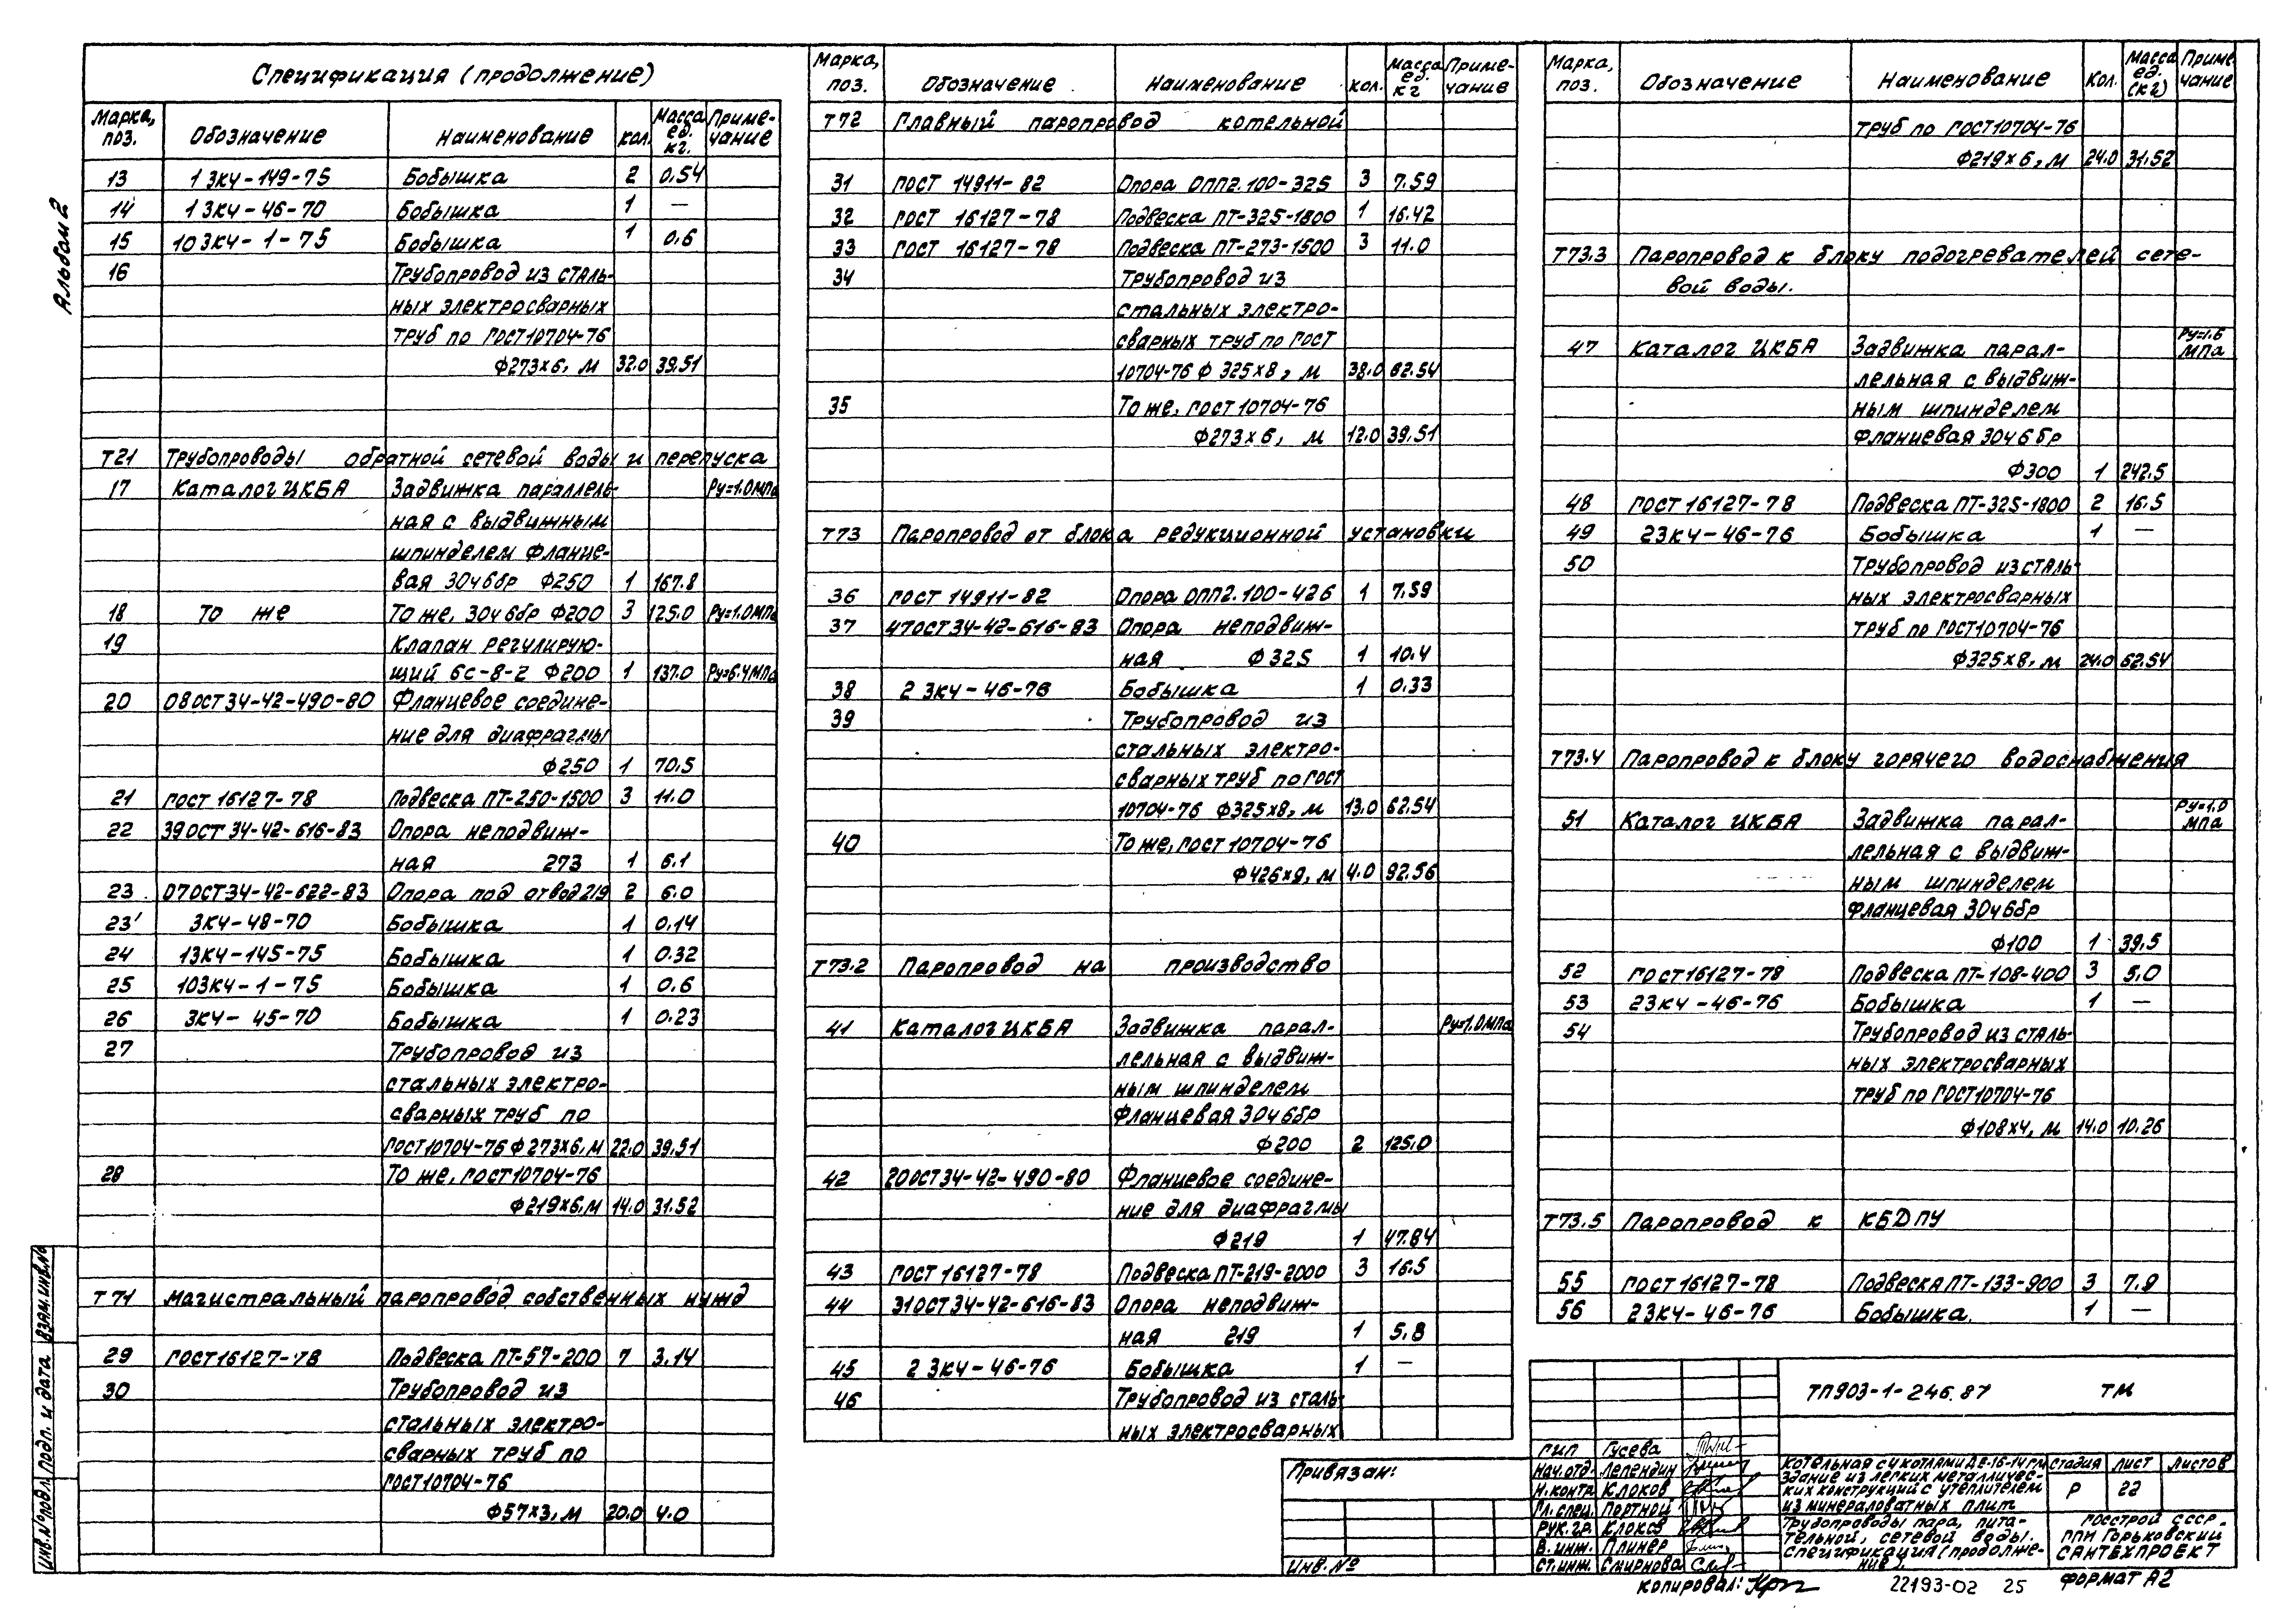 Альбом 2
Спецификация (продолжение)
Марка, поз. Обозначение Наименование кол. Масса ед. кг. Приме-чание
13 13К4-149-75 Бобышка 2 0.54
14 13К4-46-70 Бобышка 1 —
15 103К4-1-75 Бобышка 1 0.6
16 Трубопровод из сталь-
ных электросварных
труб по ГОСТ10704-76
Ф273х6, м 32.0 39.51
Т21 Трубопроводы обратной сетевой воды и перепуска
17 Каталог ЦКБА Задвижка параллель- Ру=1.0МПа
ная с выдвижным
шпинделем фланце-
вая 30ч6бр Ф250 1 167.8
18 То же То же, 30ч6бр Ф200 3 125.0 Ру=1.0МПа
19 Клапан регулирую-
щий 6с-8-2 Ф200 1 137.0 Ру=6.4МПа
20 08ОСТ34-42-490-80 Фланцевое соедине-
ние для диафрагмы
Ф250 1 70.5
21 ГОСТ 16127-78 Подвеска ПТ-250-1500 3 11.0
22 39ОСТ 34-42-616-83 Опора неподвиж-
ная 273 1 6.1
23 07ОСТ34-42-622-83 Опора под отвод 219 2 6.0
23' 3К4-48-70 Бобышка 1 0.14
24 13К4-145-75 Бобышка 1 0.32
25 103К4-1-75 Бобышка 1 0.6
26 3К4-45-70 Бобышка 1 0.23
27 Трубопровод из
стальных электро-
сварных труб по
ГОСТ10704-76 Ф273х6, м 22.0 39.51
28 То же, ГОСТ10704-76
Ф219х6, м 14.0 31.52
Т71 Магистральный паропровод собственных нужд
29 ГОСТ16127-78 Подвеска ПТ-57-200 7 3.14
30 Трубопровод из
стальных электро-
сварных труб по
ГОСТ10704-76
Ф57х3, м 20.0 4.0
Марка, поз. Обозначение Наименование кол. Масса ед. кг Приме-чание
Т72 Главный паропровод котельной
31 ГОСТ 14911-82 Опора ОПП2.100-325 3 7.59
32 ГОСТ 16127-78 Подвеска ПТ-325-1800 1 16.42
33 ГОСТ 16127-78 Подвеска ПТ-273-1500 3 11.0
34 Трубопровод из
стальных электро-
сварных труб по ГОСТ
10704-76 Ф 325х8, м 38.0 62.54
35 То же, ГОСТ 10704-76
Ф273х6, м 12.0 39.51
Т73 Паропровод от блока редукционной установки
36 ГОСТ 14911-82 Опора ОПП2.100-426 1 7.59
37 47ОСТ34-42-616-83 Опора неподвиж-
ная Ф325 1 10.4
38 23К4-46-76 Бобышка 1 0.33
39 Трубопровод из
стальных электро-
сварных труб по ГОСТ
10704-76 Ф325х8, м 13.0 62.54
40 То же, ГОСТ 10704-76
Ф426х9, м 4.0 92.56
Т73.2 Паропровод на производство
41 Каталог ЦКБА Задвижка парал- Ру=1.0МПа
лельная с выдвиж-
ным шпинделем
фланцевая 30ч6бр
Ф200 2 125.0
42 20ОСТ34-42-490-80 Фланцевое соедине-
ние для диафрагмы
Ф219 1 47.84
43 ГОСТ 16127-78 Подвеска ПТ-219-2000 3 16.5
44 31ОСТ34-42-616-83 Опора неподвиж-
ная 219 1 5.8
45 23К4-46-76 Бобышка 1 —
46 Трубопровод из сталь-
ных электросварных
Марка, поз. Обозначение Наименование Кол. Масса ед. (кг) Приме чание
труб по ГОСТ10704-76
Ф219х6, м 24.0 31.52
Т73.3 Паропровод к блоку подогревателей сете-
вой воды.
47 Каталог ЦКБА Задвижка парал- Ру=1.6 МПа
лельная с выдвиж-
ным шпинделем
фланцевая 30ч6бр
Ф300 1 242.5
48 ГОСТ 16127-78 Подвеска ПТ-325-1800 2 16.5
49 23К4-46-76 Бобышка 1 —
50 Трубопровод из сталь-
ных электросварных
труб по ГОСТ10704-76
Ф325х8, м 24.0 62.54
Т73.4 Паропровод к блоку горячего водоснабжения
51 Каталог ЦКБА Задвижка парал- Ру=1.0 МПа
лельная с выдвиж-
ным шпинделем
фланцевая 30ч6бр
Ф100 1 39.5
52 ГОСТ16127-78 Подвеска ПТ-108-400 3 5.0
53 23К4-46-76 Бобышка 1 —
54 Трубопровод из сталь-
ных электросварных
труб по ГОСТ10704-76
Ф108х4, м 14.0 10.26
Т73.5 Паропровод к КБДПУ
55 ГОСТ16127-78 Подвеска ПТ-133-900 3 7.9
56 23К4-46-76 Бобышка. 1 —
ТП903-1-246.87 ТМ
Привязан:
Инв. №
ГИП Гусева
Нач.отд. Лепендин
Н.контр. Клоков
Гл. спец. Портной
Рук.гр. Клоков
В.инж. Плинер
Ст.инж. Смирнова
Котельная с 4 котлами ДЕ-16-14ГМ
Здание из легких металличес-
ких конструкций с утеплителем
из минераловатных плит
Стадия Лист Листов
Р 22
Трубопроводы пара, пита-
тельной, сетевой воды.
Спецификация (продолже-
ние).
Госстрой СССР.
ГПИ Горьковский
САНТЕХПРОЕКТ
Копировал:
22193-02 25
Формат А2
Инв.№подл. Подп. и дата Взам.инв.№